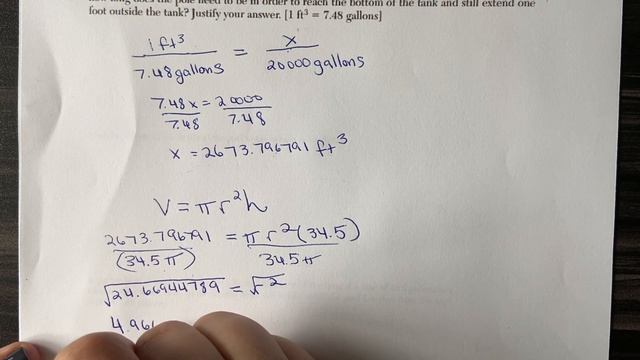 long does the pole need to be in order to reach the bottom of the tank and still extend one
foot outside the tank? Justify your answer. [1 ft³ = 7.48 gallons]
1 ft³ / 7.48 gallons = x / 20000 gallons
7.48x / 7.48 = 20000 / 7.48
x = 2673.796791 ft³
V = πr²h
2673.796791 / (34.5π) = πr²(34.5) / 34.5π
√24.66944789 = √r²
4.96